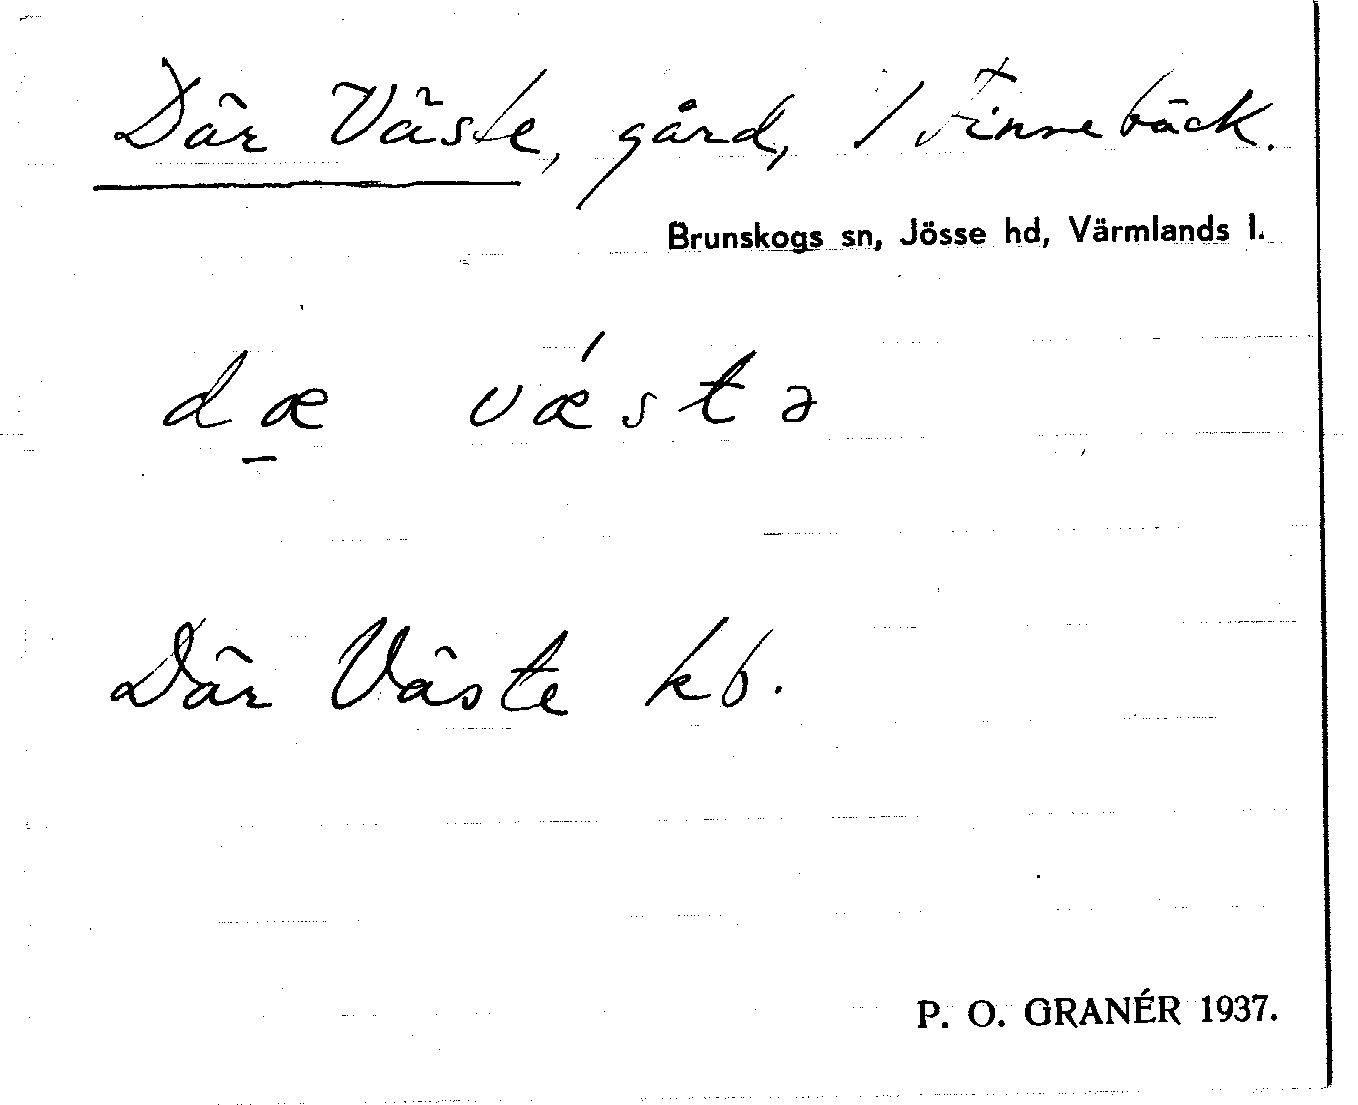 Där Väste, gård, / Finnebäck.
Brunskogs sn, Jösse hd, Värmlands l.
dæ̱ vǽstə
Där Väste kb.
P. O. GRANÉR 1937.